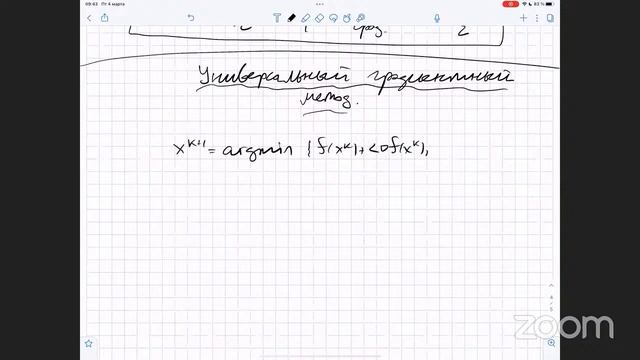 09:43 Пт 4 марта
83 %
2
Универсальный градиентный
метод.
x^{k+1} = argmin { f(x^k) + <∇f(x^k),
zoom